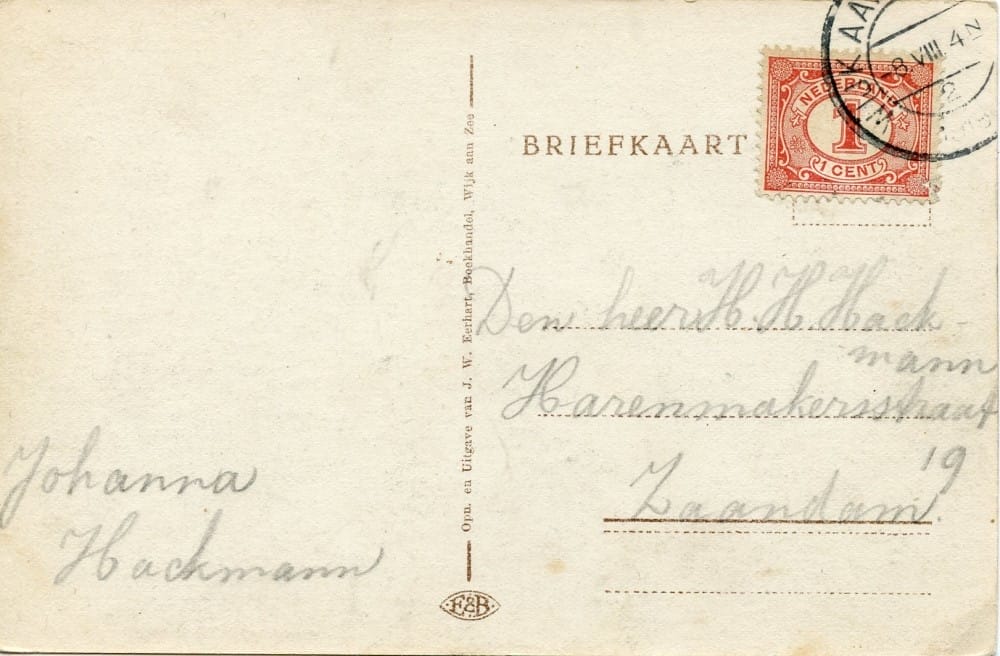 BRIEFKAART
NEDERLAND
1
1 CENT
8 VIII 4 N
Opn. en Uitgave van J. W. Eerhart, Boekhandel, Wijk aan Zee
Den heer H. H. Hack-
mann
Harenmakersstraat
19
Zaandam.
Johanna
Hackmann
E&B